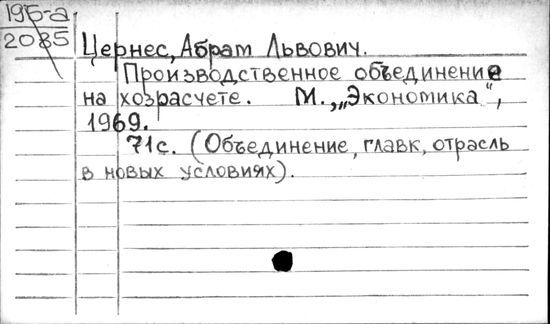 195-а
2085
Цернес, Абрам Львович.
Производственное объединение
на хозрасчете. М., „Экономика",
1969.
71с. (Объединение, главк, отрасль
в новых условиях).